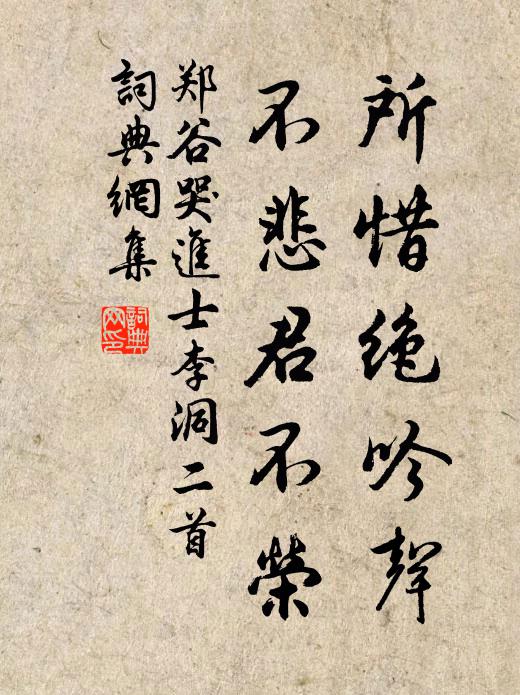 所惜绝吟聲
不悲君不榮
郑谷哭進士李洞二首
詞典網集
詞典
网印